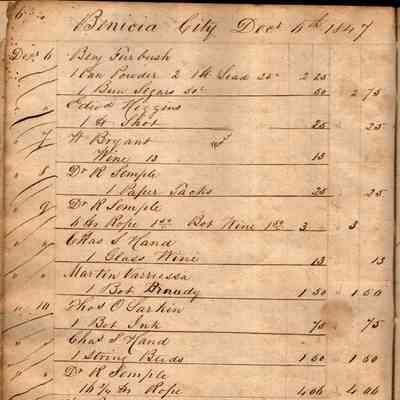 Benicia City Decr 6th 1847
Decr 6 Benj Furbush
1 Can Powder 2 lb Lead 25c 2 25
1 Bun Segars 50c 50 2 75
Edwd Higgins
1 lb Shot 25 25
" 7 W Bryant
Wine 13 13
" 8 Dr R Semple
1 Paper Tacks 25 25
" 9 Dr R Semple
6 lbs Rope 1 50 Bot Wine 1 50 3 3
" " Chas S Hand
1 Glass Wine 13 13
" " Martin
1 Bot Brandy 1 50 1 50
" 10 Thos O Larkin
1 Bot Ink 75 75
" " Chas S Hand
1 String Beads 1 50 1 50
" " Dr R Semple
16 1/4 lbs Rope 4 06 4 06